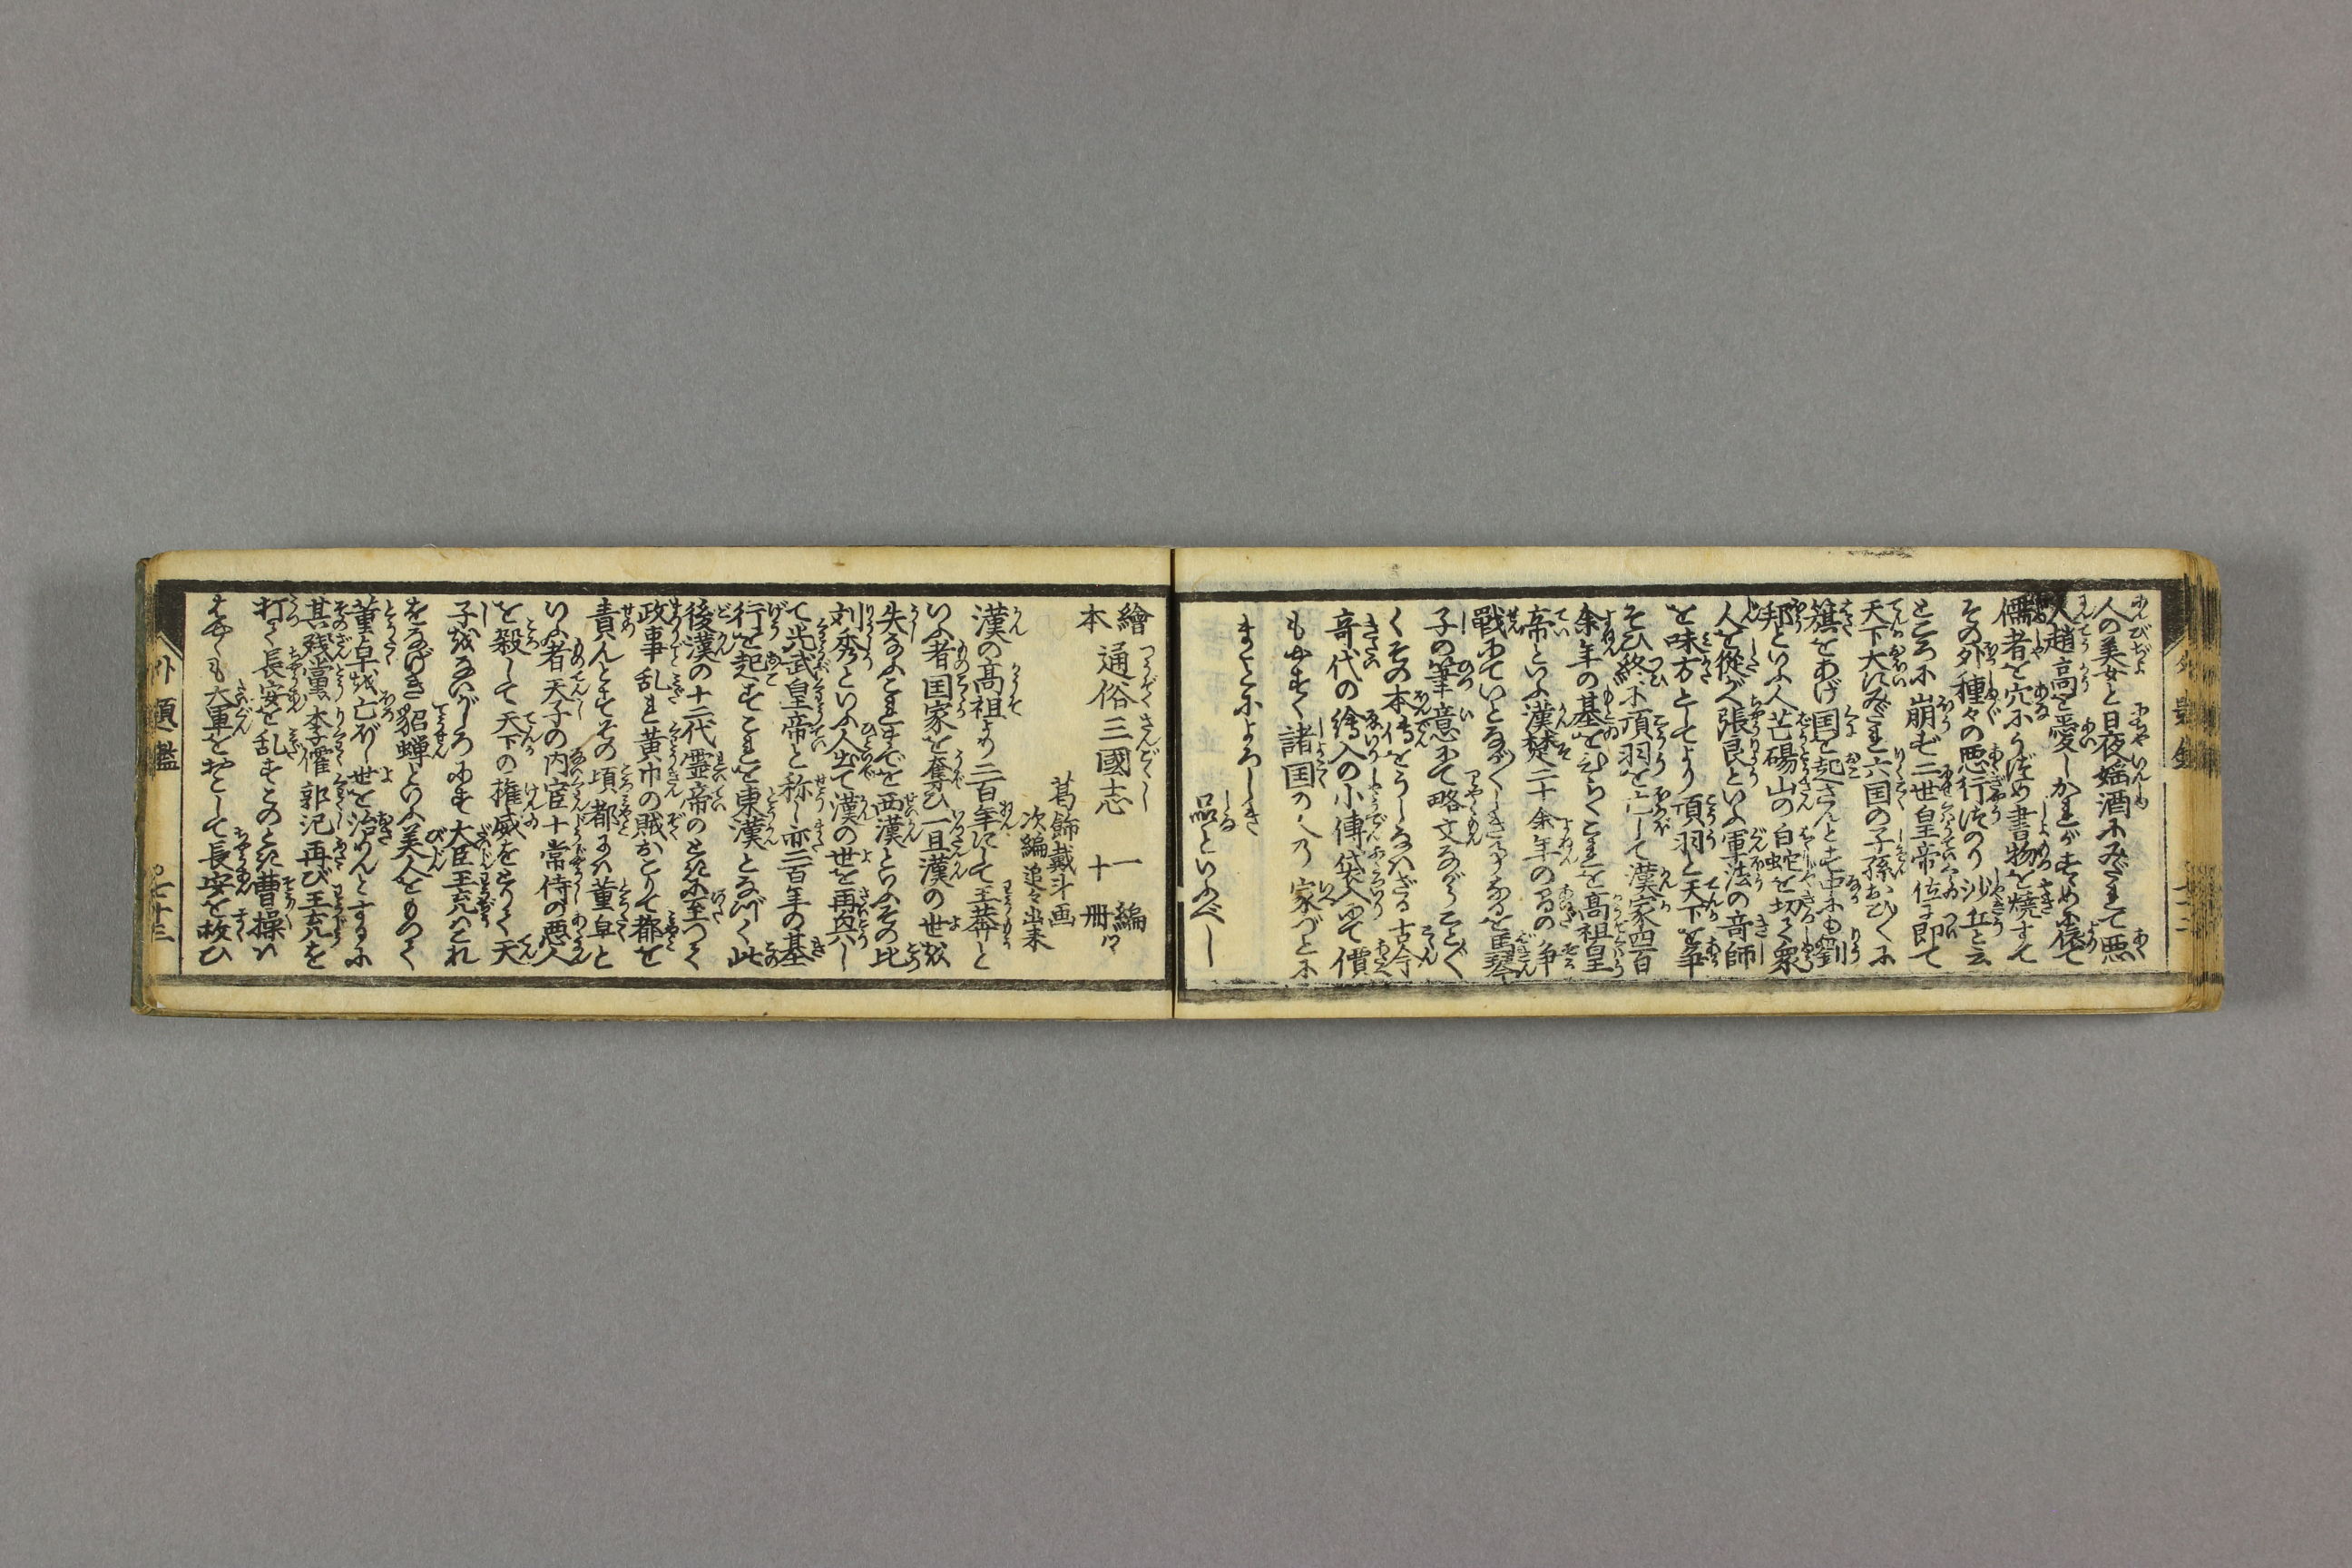 人の美女と日夜婬酒にみだれて悪
人趙高を愛しかれがすゝめに依て
儒者を穴にうづめ書物を焼すて
その外種々の悪行つのり沙丘と云
ところに崩ず二世皇帝位に即て
天下大にみだれ六国の子孫おひ〳〵に
籏をあげ国を起さんとす中にも劉
邦といふ人芒碭山の白蛇を切て衆
人を従へ張良といふ軍法の竒師
を味方としてより項羽と天下を争
そひ終に項羽を亡して漢家四百
余年の基をひらくこれを高祖皇
帝といふ漢楚二十余年のあひの争
戦にていとなが〳〵しき事なるを馬琴
子の筆意にて略文ながらこと〴〵
くその本傳をうしなはざる古今
竒代の絵入の小傳袋入にて價
もやすく諸国の人の家づとに
まことによろしき
品といふべし
繪本通俗三國志 一編十冊ツヽ
葛飾戴斗画
次編追々出来
漢の高祖より二百年にして王莽と
いふ者国家を奪ひ一旦漢の世を
失なふこれまでを西漢といふその比
刘秀といふ人出て漢の世を再興し
て光武皇帝と称し亦二百年の基
行を起すこれを東漢となづく此
後漢の十二代霊帝のときに至つて
政事乱れ黄巾の賊おこりて都を
責んとすその頃都には董卓と
いふ者天子の内宦十常侍の悪人
を殺して天下の権威をとりて天
子をないがしろにす大臣王允これ
をなげき貂蝉といふ美人をもつて
董卓を亡ぼし世を治めんとするに
其残黨李傕郭汜再び王允を
打て長安を乱すこのとき曹操は
はやくも大軍をおこして長安を救ひ
外題鑑
四十三
外題鑑